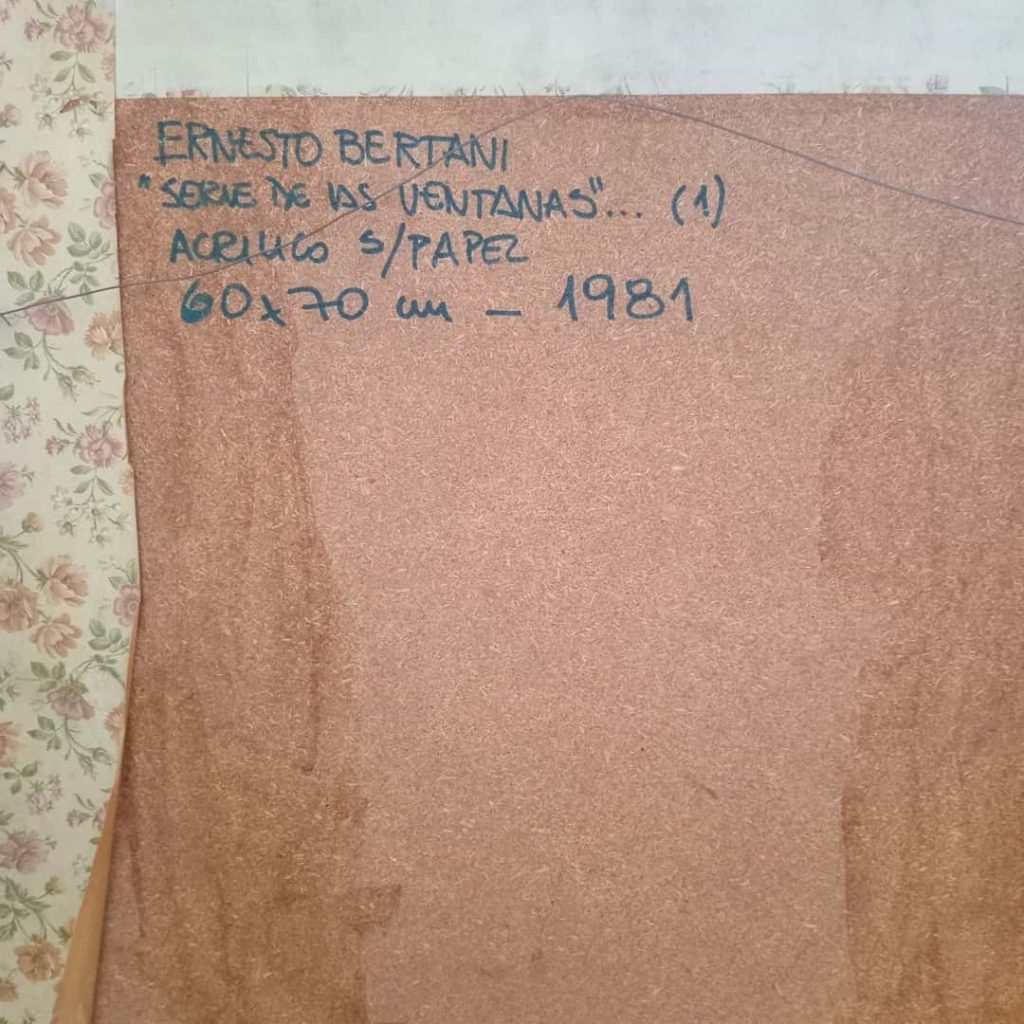 ERNESTO BERTANI
"SERIE DE LAS VENTANAS"... (1)
ACRILICO S/PAPEL
60x70 cm - 1981